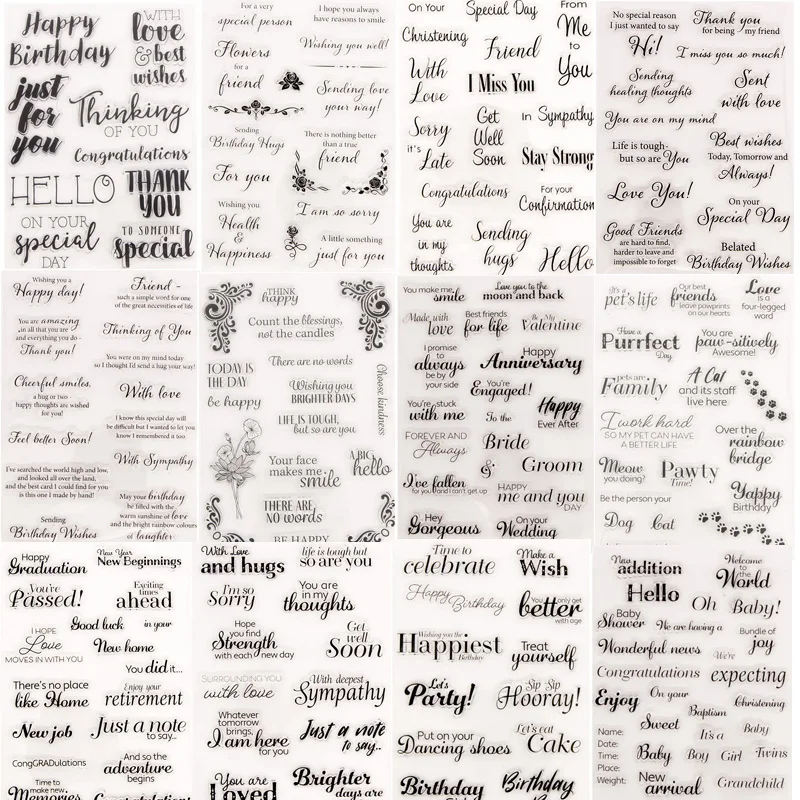 Happy
Birthday
WITH
love
& best
wishes
just
for
you
Thinking
OF YOU
Congratulations
HELLO
THANK
YOU
ON YOUR
special
DAY
TO SOMEONE
special
For a very
special person
I hope you always
have reasons to smile
Flowers
for a
friend
Wishing you well!
Sending love
your way!
Sending
Birthday Hugs
There is nothing better
than a true
friend
For you
I am so sorry
Wishing you
Health
&
Happiness
A little something
just for you
On Your
Christening
Special Day
From
Me
to
You
Friend
With
Love
I Miss You
Sorry
it's
Late
Get
Well
Soon
In Sympathy
Stay Strong
Congratulations
For your
Confirmation
You are
in my
thoughts
Sending
hugs
Hello
No special reason
I just wanted to say
Hi!
Thank you
for being my friend
I miss you so much!
Sending
healing thoughts
Sent
with love
You are on my mind
Life is tough-
but so are You
Best wishes
Today, Tomorrow and
Always!
Love You!
On your
Special Day
Good Friends
are hard to find,
harder to leave and
impossible to forget
Belated
Birthday Wishes
Wishing you a
Happy day!
Friend -
such a simple word for one
of the great necessities of life
You are amazing
in all that you are
and everything you do -
Thank you!
Thinking of You
You were on my mind today
so I thought I'd send a hug your way!
Cheerful smiles,
a hug or two -
happy thoughts are wished
for you!
With love
I know this special day will
be difficult but I wanted to let you
know I remembered it too
Feel better Soon!
With Sympathy
I've searched the world high and low,
and looked all over the land,
and the best card I could find for you
is this one I made by hand!
May your birthday
be filled with the
warm sunshine of love
and the bright rainbow colours
of laughter
Sending
Birthday Wishes
THINK
happy
Count the blessings,
not the candles
TODAY IS
THE DAY
be happy
There are no words
Wishing you
BRIGHTER DAYS
Choose kindness
LIFE IS TOUGH,
but so are you
Your face
makes me
smile
A BIG
hello
THERE ARE
NO words
BE HAPPY
You make me
smile
Love you to the
moon and back
Made with
love
Best friends
for life
Be My
Valentine
I promise
to
always
be by
your side
Happy
Anniversary
You're
Engaged!
You're stuck
with me
To the
Happy
Ever After
FOREVER AND
Always
Bride
&
Groom
I've fallen
for you and I can't get up
HAPPY
me and you
DAY
Hey
Gorgeous
On your
Wedding
It's a
pet's life
Our best
friends
leave pawprints
on our hearts
Love
is a
four-legged
word
Have a
Purrfect
Day
You are
paw-sitively
Awesome!
pets are
Family
A Cat
and its staff
live here
I work hard
SO MY PET CAN HAVE
A BETTER LIFE
Over the
rainbow
bridge
Meow
you doing?
Pawty
Time!
Be the person your
Dog
Cat
Yappy
Birthday
Happy
Graduation
New Year
New Beginnings
You've
Passed!
Exciting
times
ahead
Good luck
in your
I HOPE
Love
MOVES IN WITH YOU
New home
You did it...
There's no place
like Home
Enjoy your
retirement
New job
Just a note
to say...
CongGRADulations
And so the
adventure
begins
Time to
make new
Memories
Congratulations
With Love
and hugs
life is tough but
so are you
I'm so
Sorry
You are
in my
thoughts
Hope
you find
Strength
with each new day
Get
well
Soon
SURROUNDING YOU
with love
With deepest
Sympathy
Whatever
tomorrow
brings,
I am here
for you
Just a note
to say..
You are
Loved
Brighter
days are
Time to
celebrate
Make a
Wish
Happy
Birthday
You only get
better
with age
Wishing you the
Happiest
Birthday
Treat
yourself
Let's
Party!
Sip Sip
Hooray!
Put on your
Dancing shoes
Let's eat
Cake
Birthday
Birthday
New
addition
Welcome
to the
World
Hello
Oh Baby!
Baby
Shower
We are having a
Bundle of
joy
Wonderful news
We're
expecting
Congratulations
Enjoy
On your
Baptism
Christening
Sweet
It's a
Baby
Name:
Date:
Time:
Place:
Weight:
Baby
Boy
Girl
Twins
New
arrival
Grandchild